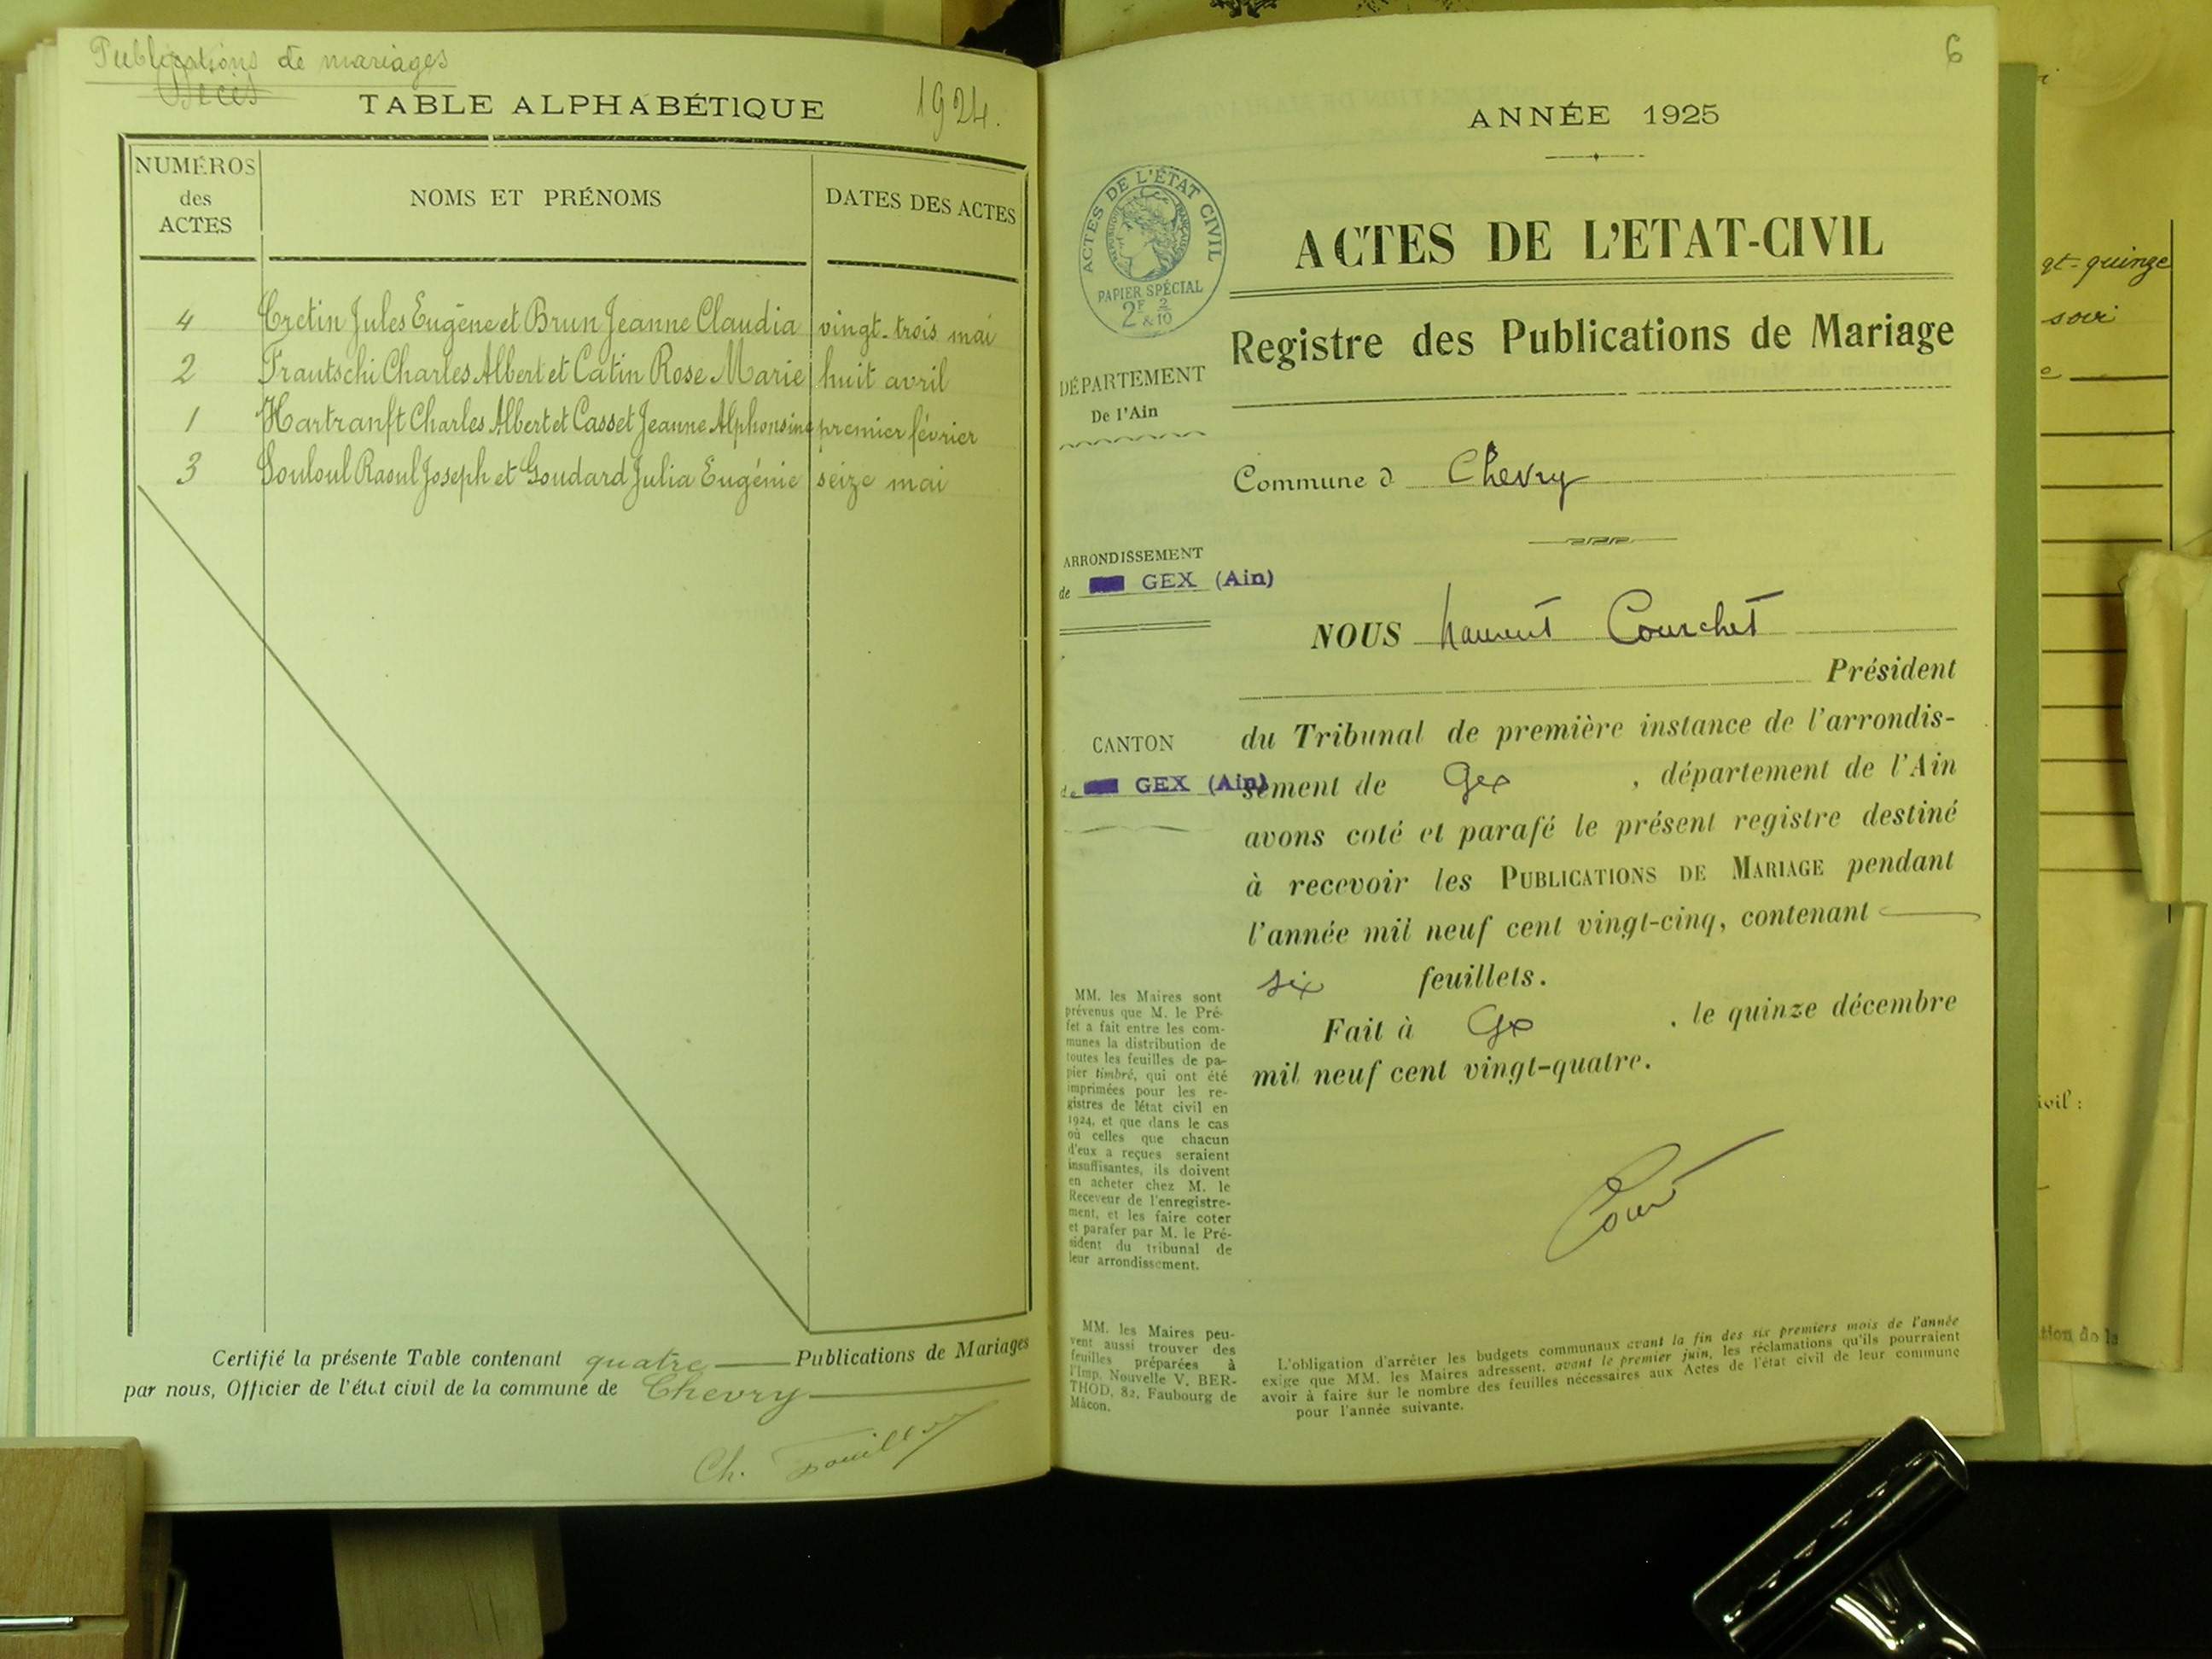 Publications de mariages
Décès
TABLE ALPHABÉTIQUE 1924.
NUMÉROS des ACTES NOMS ET PRÉNOMS DATES DES ACTES
4 Cretin Jules Eugène et Brun Jeanne Claudia vingt-trois mai
2 Frautschi Charles Albert et Catin Rose Marie huit avril
1 Hartranft Charles Albert et Casset Jeanne Alphonsine premier février
3 Souloul Raoul Joseph et Goudard Julia Eugénie seize mai
Certifié la présente Table contenant quatre Publications de Mariages
par nous, Officier de l'état civil de la commune de Chevry
Ch.
6
ANNÉE 1925
ACTES DE L'ÉTAT CIVIL
RÉPUBLIQUE FRANÇAISE
PAPIER SPÉCIAL
2F & 2/10
ACTES DE L'ETAT-CIVIL
Registre des Publications de Mariage
DÉPARTEMENT
De l'Ain
Commune d Chevry
ARRONDISSEMENT
de GEX (Ain)
NOUS Laurent Courchet
Président
CANTON
de GEX (Ain)
du Tribunal de première instance de l'arrondis-
sement de Gex , département de l'Ain
avons coté et parafé le présent registre destiné
à recevoir les PUBLICATIONS DE MARIAGE pendant
l'année mil neuf cent vingt-cinq, contenant
six feuillets.
Fait à Gex , le quinze décembre
mil neuf cent vingt-quatre.
MM. les Maires sont
prévenus que M. le Pré-
fet a fait entre les com-
munes la distribution de
toutes les feuilles de pa-
pier timbré, qui ont été
imprimées pour les re-
gistres de l'état civil en
1924, et que dans le cas
où celles que chacun
d'eux a reçues seraient
insuffisantes, ils doivent
en acheter chez M. le
Receveur de l'enregistre-
ment, et les faire coter
et parafer par M. le Pré-
sident du tribunal de
leur arrondissement.
MM. les Maires peu-
vent aussi trouver des
feuilles préparées à
l'Imp. Nouvelle V. BER-
THOD, 82, Faubourg de
Mâcon.
L'obligation d'arrêter les budgets communaux avant la fin des six premiers mois de l'année
exige que MM. les Maires adressent, avant le premier juin, les réclamations qu'ils pourraient
avoir à faire sur le nombre des feuilles nécessaires aux Actes de l'état civil de leur commune
pour l'année suivante.
gt-quinze
soir
ivil :
tion de la